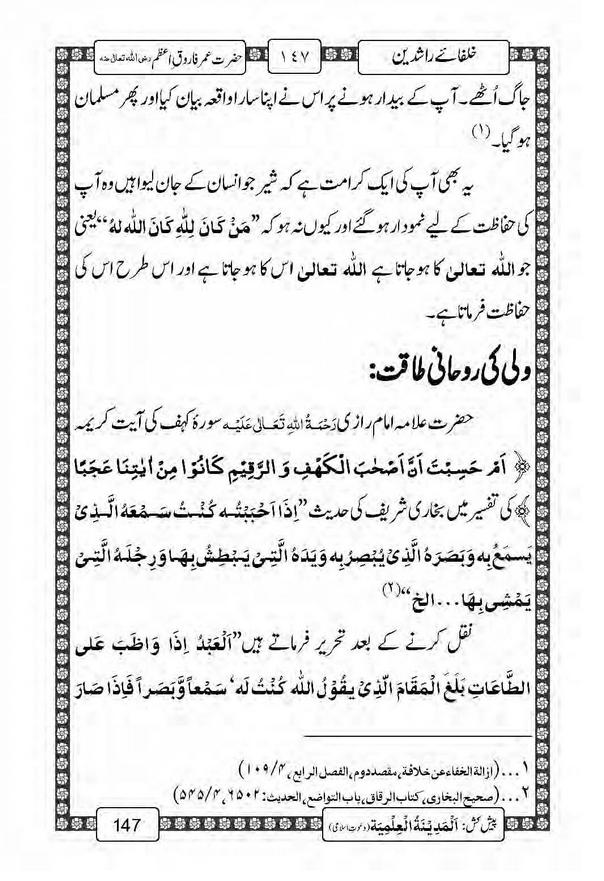 خلفائے راشدین
١٤٧
حضرت عمر فاروقِ اعظم رضی اللہ تعالیٰ عنہ
جاگ اُٹھے۔ آپ کے بیدار ہونے پر اس نے اپنا سارا واقعہ بیان کیا اور پھر مسلمان
ہو گیا۔ (١)
یہ بھی آپ کی ایک کرامت ہے کہ شیر جو انسان کے جان لیوا ہیں وہ آپ
کی حفاظت کے لیے نمودار ہو گئے اور کیوں نہ ہو کہ ”مَنْ كَانَ لِلّٰهِ كَانَ اللّٰه لهُ“ یعنی
جو اللہ تعالیٰ کا ہو جاتا ہے اللہ تعالیٰ اس کا ہو جاتا ہے اور اس طرح اس کی
حفاظت فرماتا ہے۔
ولی کی روحانی طاقت:
حضرت علامہ امام رازی رَحْمَةُ اللهِ تَعَالٰی عَلَيْه سورۂ کہف کی آیت کریمہ
﴿ اَمْ حَسِبْتَ اَنَّ اَصْحٰبَ الْكَهْفِ وَ الرَّقِيْمِ كَانُوْا مِنْ اٰيٰتِنَا عَجَبًا
﴾ کی تفسیر میں بخاری شریف کی حدیث ”اِذَا اَحْبَبْتُه كُنْتُ سَمْعَهُ الَّذِيْ
يَسمَعُ بِه وَبَصَرَهُ الَّذِيْ يُبْصِرُ بِه وَيَدَهُ الَّتِيْ يَبْطِشُ بِهَا وَرِجْلَهُ الَّتِيْ
يَمْشِى بِهَا...الخ“ (٢)
نقل کرنے کے بعد تحریر فرماتے ہیں ”اَلْعَبْدُ اِذَا وَاظَبَ عَلى
الطَّاعَاتِ بَلَغَ الْمَقَامَ الَّذِيْ يقُوْلُ اللّٰه كُنْتُ لَه‘ سَمْعاً وَّبَصَراً فَاِذَا صَارَ
١... (ازالة الخفاء عن خلافة، مقصد دوم، الفصل الرابع، ١٠٩/٤)
٢... (صحيح البخارى، كتاب الرقاق، باب التواضع، الحديث: ٦٥٠٢، ٥٤٥/٤)
پیش کش: اَلْمَدِيْنَةُ الْعِلْمِيَة (دعوتِ اسلامی)
147